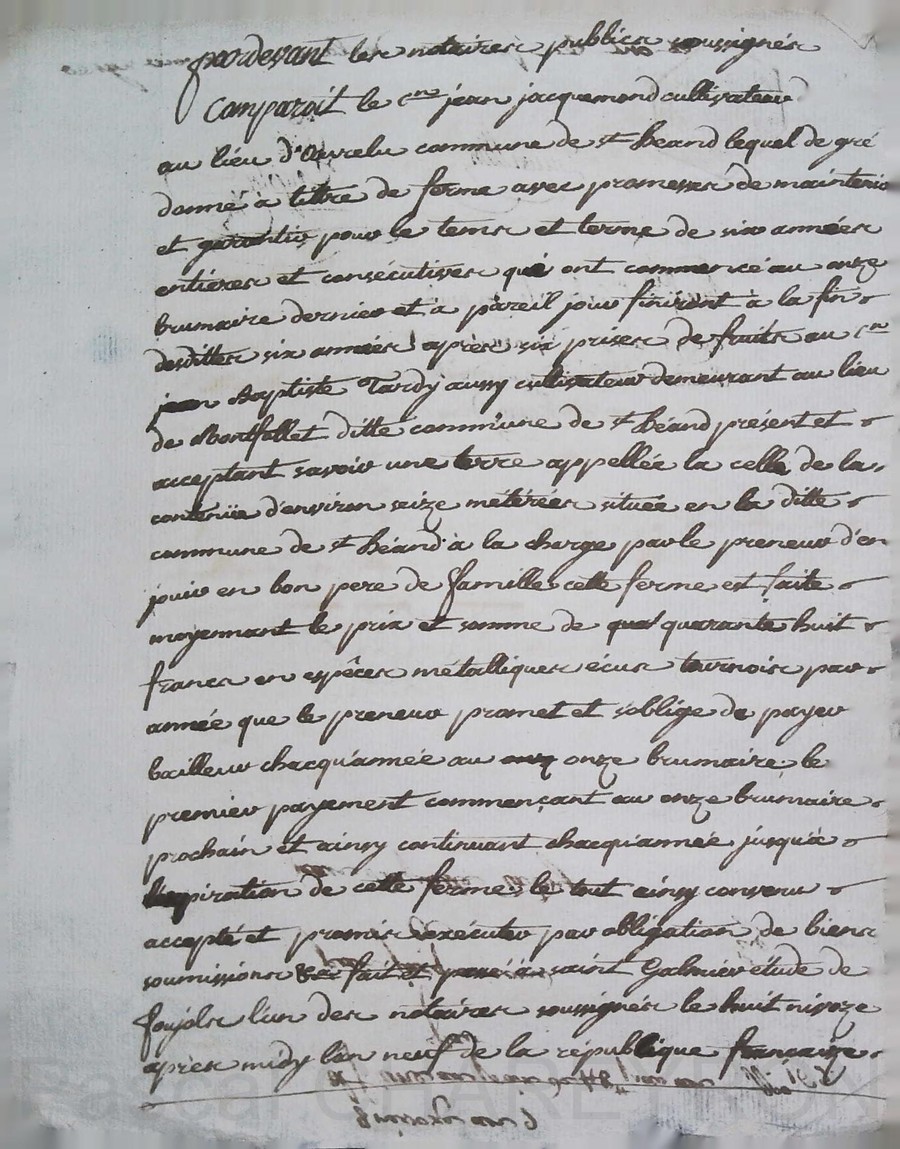 pardevant les notaires publics soussignés
Comparoit le c.en jean jacquemond cultivateur
au lieu d' commune de st héand lequel de gré
donné a tittre de ferme avec promesses de maintenir
et garantir pour le tems et terme de six années
entieres et consécutives qui ont commencé au onze
brumaire dernier et à pareil jour finiront à la fin
desdittes six années après six prises de fruits au c.en
jean Baptiste Tardy aussy cultivateur demeurant au lieu
de Montfollet ditte commune de st héand présent et
acceptant savoir une terre appellée la celle de la
contenüe d'environ seize métérées située en la ditte
commune de st héand à la charge par le preneur d'en
jouir en bon pere de famille cette ferme est faite
moyennant le prix et somme de quarante huit
francs en espêces métalliques écus tournois par
année que le preneur promet et s'oblige de payer
bailleur chacqu'année au onze brumaire le
premier payement commençant au onze brumaire
prochain et ainsy continuant chacqu'année jusqu'à
l'expiration de cette ferme. le tout ainsy convenu
accepté et promis exécuter par obligation de biens
soumissions fait et passé à saint Galmier étude de
foujols l'un des notaires soussignés le huit nivoze
après midy l'an neuf de la république française
Pascal CHAREYRON